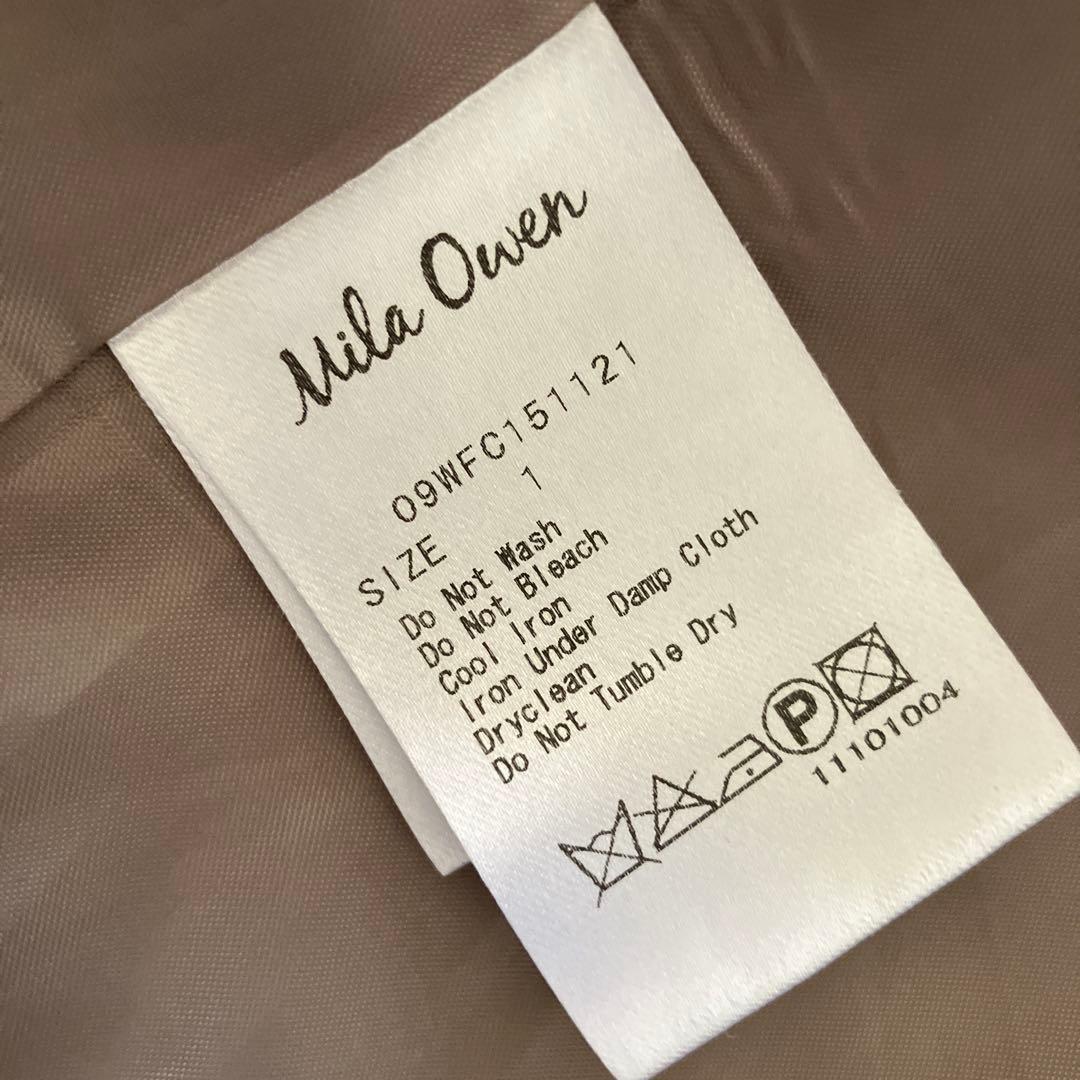 Mila Owen
09WFC151121
SIZE 1
Do Not Wash
Do Not Bleach
Cool Iron
Iron Under Damp Cloth
Dryclean
Do Not Tumble Dry
P
11101004